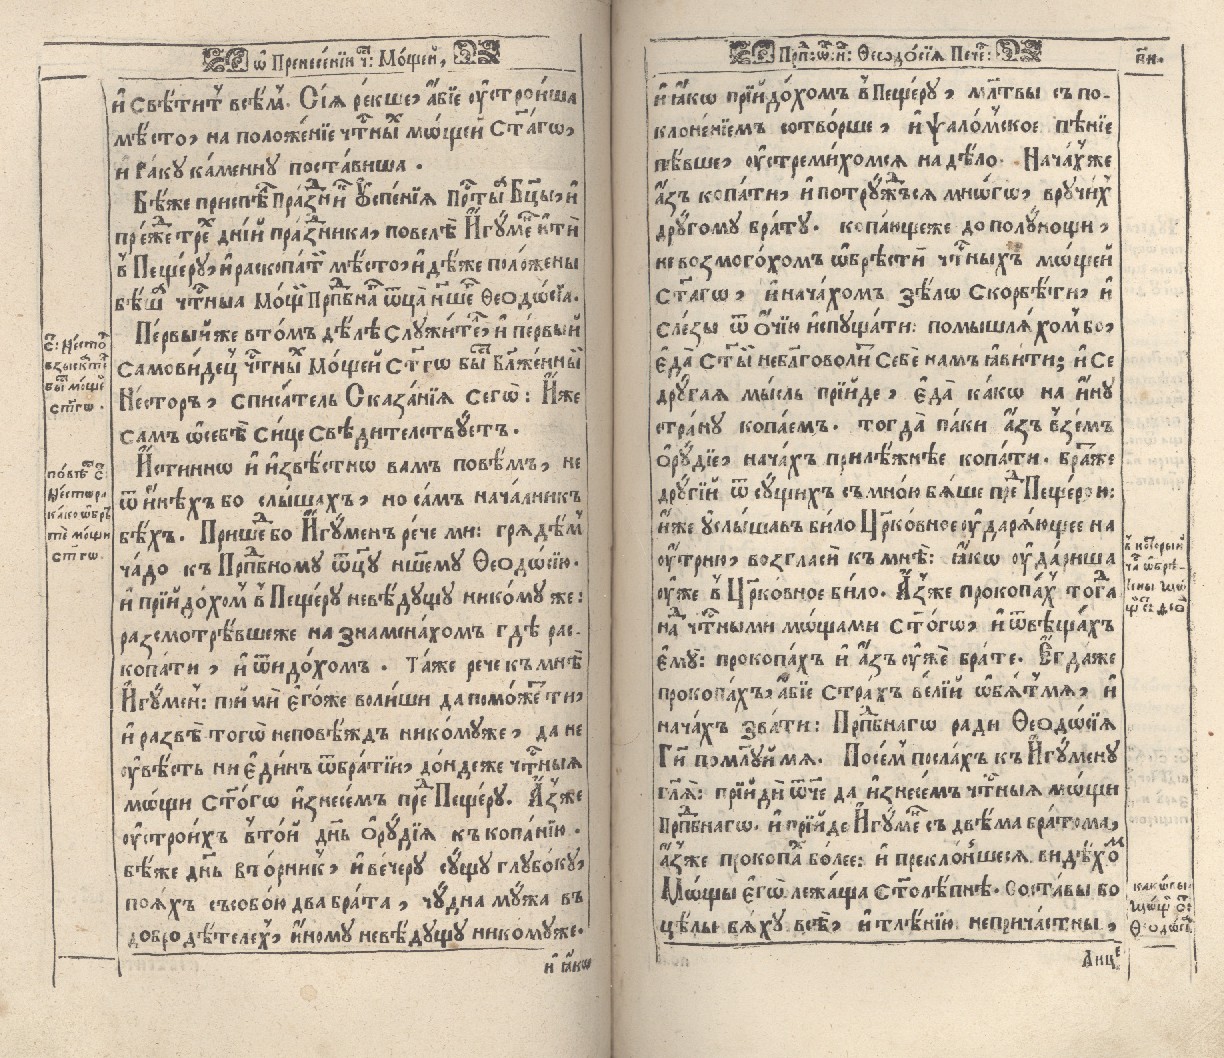 ѡ҃ Пренесе́нїи чⷭ҇: Мо́щей,
и҆ свѣ́титⸯ всѣ́мⸯ. Сїѧ̀ ре́кше, а҆́бїе ᲂу҆стро́иша
мѣ́сто, на положе́нїе чⷭ҇тныⷯ мѡ́щей Ст҃а́гѡ,
и҆ Ра́кꙋ ка́меннꙋ поста́виша .
Бѣ́же приспѣ́лⸯ Пра́здни́кⸯ Оу҆спе́нїѧ Прⷭ҇тыѧ Бц҃ы, и҆
пре́жⷣе тре́хⸯ дні́й пра́зⷣника, повелѣ̀ И҆гꙋ́менⸯ и҆тѝ
в̾ Пеще́рꙋ, и҆ раскопа́тⸯ мѣ́сто, и҆дѣ́же положе́ны
бѣ́шⷶ чⷭ҇тныа Мо́щⷨ Прⷣпбнаⷢ ѿц҃а̀ н҃шегⷪ Ѳеодо́сїа.
Пе́рвый же вто́мъ дѣ́лѣ слꙋжи́тель, и҆ пе́рвый
самови́децⸯ чⷭ҇тныⷯ Мо́щей Ст҃гѡ бы́стⸯ Бл҃же́нный
Не́сторъ, списа́тель Сказа́нїѧ сегѡ̀: И҆́же
са́мъ ѡ҆себѣ̀ си́це свѣди́телствꙋетъ.
И҆́стиннѡ и҆ и҆звѣ́стнѡ вамъ повѣ́мъ, не
ѿ и҆нѣ́хъ бо слы́шахъ, но са́мъ нача́лникъ
бѣ́хъ. Прише́дⸯ бо И҆гꙋ́менъ рече ми: грѧдѣ́мⸯ
ча́до къ Прⷣпбномꙋ ѿц҃ꙋ н҃шемꙋ Ѳеодѡ́сїю.
и҆ прїйдо́хомⸯ в̾ Пеще́рꙋ невѣ́дꙋщꙋ нико́мꙋ же:
разсмотрѣ́вшеже на знамена́хомъ гдѣ̀ рас-
копа́ти, и҆ ѿидо́хомъ . Та́же рече къ мнѣ̀
И҆гꙋ́менⸯ: пои́мѝ є҆го́же во́лиши да помо́жетⸯ ти,
и҆ развѣ̀ тогѡ̀ неповѣ́ждъ нико́мꙋже, да не
ᲂу҆вѣ́сть ни є҆ди́нъ ѿбра́тїи, до́ндеже чⷭ҇тныѧ
мѡ́щи Ст҃о́гѡ и҆знесе́мъ пре́дⸯ Пеще́рꙋ. А҆́зⸯже
ᲂу҆стро́ихъ в̾то́й дн҃ь Ѻ҆рꙋ́дїѧ къ копа́нїю.
бѣ́же дн҃ь вто́рникⸯ, и҆ ве́черꙋ сꙋ́щꙋ глꙋбо́кꙋ,
поѧ́хъ съсобо́ю два бра́та, чꙋ́дна мꙋ́жа въ
добродѣ́телехⸯ, и҆́номꙋ невѣ́дꙋщꙋ нико́мꙋже.
и҆ ꙗ҆́кѡ
с҃: Не́стоⷬ
взыска́теⷧ
бы́стⸯ мо́щеⷨ
ст҃гѡ .
по́вѣⷭ҇ с҃:
Не́стора
ка́кѡ ѡ҆брⷮ
тѐ мо́щи
ст҃гѡ.
Прⷣп: ѿц҃: н҃: Ѳеодо́сїѧ Пече: рн҃и.
и҆ ꙗ҆́кѡ прїйдо́хомъ в̾ Пеще́рꙋ, мл҃твы съ по-
клоне́нїемъ сотво́рше, и҆ ѱало́мское пѣ́нїе
пѣ́вше, ᲂу҆стреми́хомсѧ на дѣ́ло. Нача́хⸯже
а҆́зъ копа́ти, и҆ потрꙋ́ждъсѧ мно́гѡ, врꙋчи́хⸯ
дрꙋ́гомꙋ бра́тꙋ. копа́ющеже до полꙋ́нощи,
не возмого́хомъ ѡ҆брѣстѝ чⷭ҇тныхъ мѡ́щей
Ст҃а́гѡ, и҆ нача́хомъ зѣлѡ̀ Скорбѣ́ти, и҆
сле́зы ѿ Ѻ҆́чїю и҆спꙋща́ти: помышлѧ́хомⸯ бо,
є҆да̀ Ст҃ы́й небл҃говоли́тⸯ себѐ намъ ꙗ҆ви́ти; и҆ се
дрꙋ́гаѧ мы́сль прїи́де, є҆да̀ ка́кѡ на и҆́нꙋ
стра́нꙋ копа́емъ. тогда̀ па́ки а҆́зъ взе́мъ
Ѻ҆рꙋ́дїе, нача́хъ приле́жнѣе копа́ти. бра́тⸯже
дрꙋ́гїй ѿ сꙋ́щихъ съмно́ю бѧ́ше пре́дⸯ Пеще́рою:
и҆́же ᲂу҆слы́шавъ би́ло Цр҃ко́вное ᲂу҆дарѧ́ющее на
ᲂу҆́трню, возгласѝ къ мнѣ̀: ꙗ҆́кѡ ᲂу҆да́риша
ᲂу҆́же в̾ Цр҃ко́вное би́ло. А҆́зⸯже прокопа́хⸯ тогⷣа
на́дⸯ чⷭ҇тными мѡ́щами Ст҃о́гѡ, и҆ ѿвѣща́хъ
є҆мꙋ̀: прокопа́хъ и҆ а҆́зъ ᲂу҆жѐ бра́те. Є҆гда́же
прокопа́хъ, а҆́бїе стра́хъ ве́лїй ѡ҆бѧ́тⸯмѧ, и҆
нача́хъ зва́ти: Прⷣпбнагѡ ра́ди Ѳеодѡ́сїѧ
Гд҃и поми́лꙋй мѧ. Посе́мⸯ посла́хъ къ И҆гꙋ́менꙋ
гл҃ѧ: прїйдѝ ѿч҃е да и҆знесе́мъ чⷭ҇тныѧ мѡ́щи
Прⷣпбнагѡ. и҆ прїи́де И҆гꙋ́менⸯ съ двѣ́ма бра́тома,
а҆́зⸯже прокопа́хⸯ бо́лее: и҆ прекло́ньшесѧ, ви́дѣхоⷨ
Мѡ́щы є҆гѡ̀ лежа́ща Ст҃олѣ́пнѣ. Соста́вы бо
цѣ́лы бѧ́хꙋ всѣ̀, и҆ тлѣ́нїю неприча́стны,
Лицѐ
в̾ кото́рый
чаⷭ҇ ѡ҆брѣ-
каковы̀
Ѳеодѡ́сⷷ